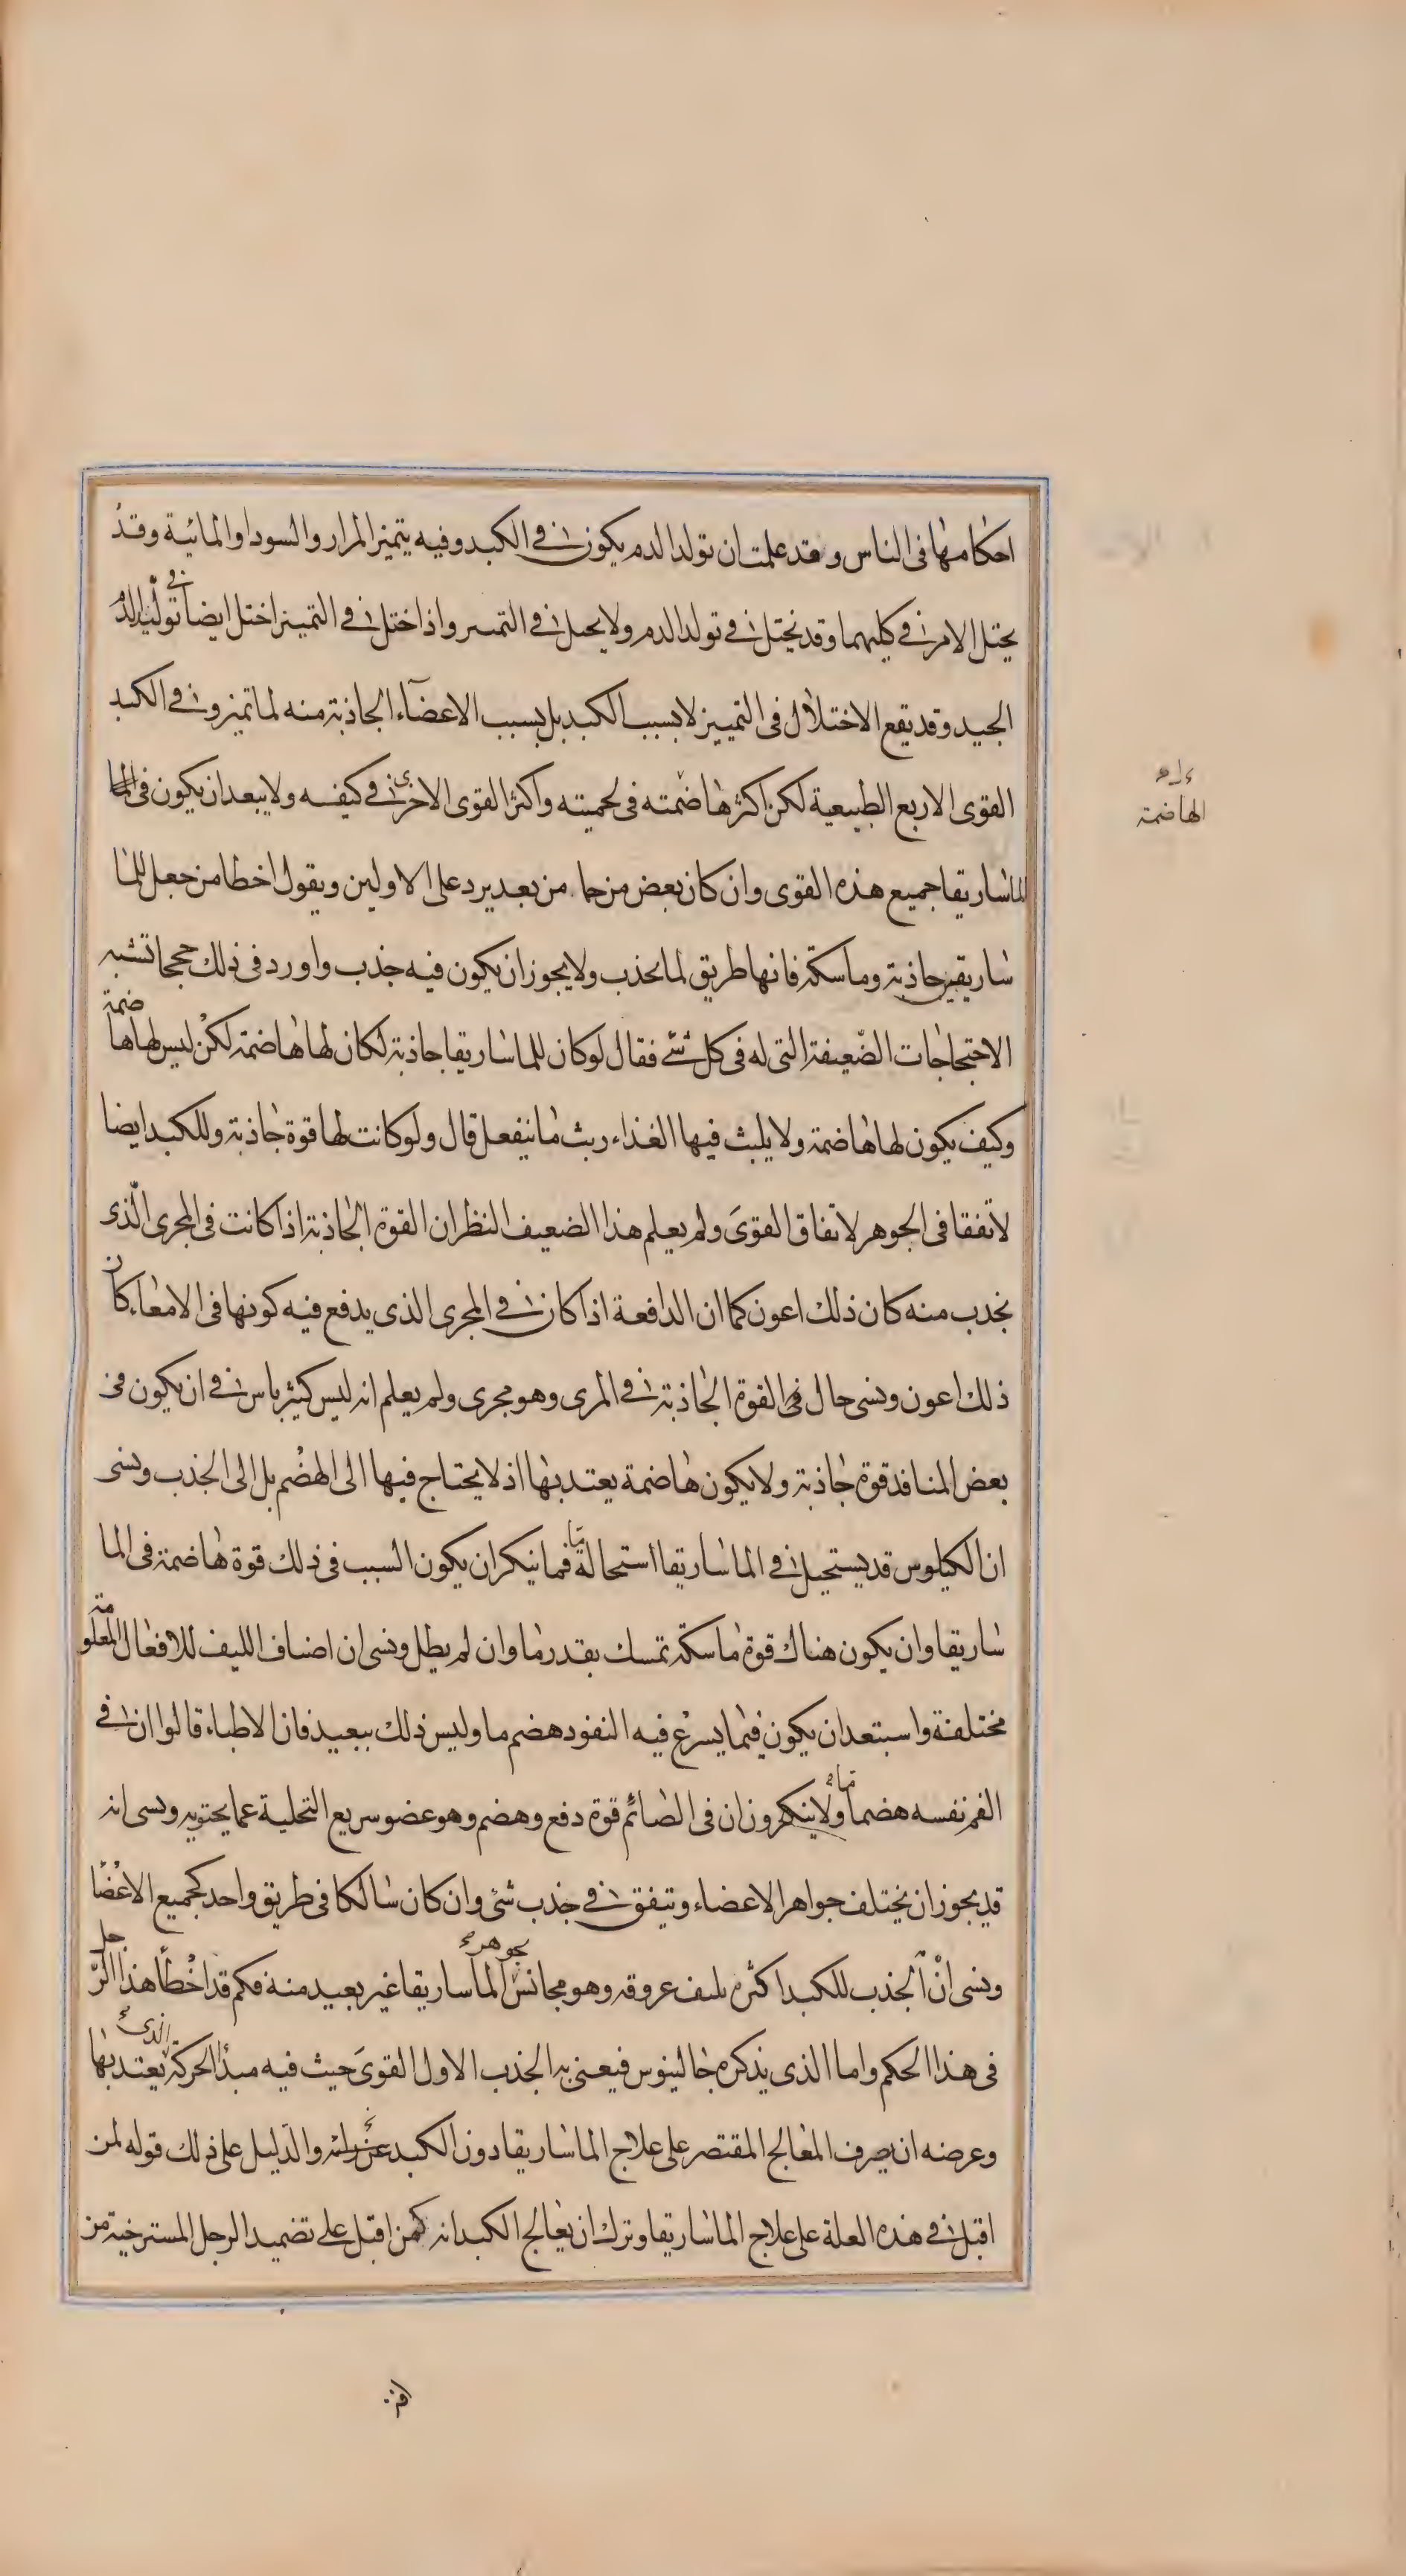 احكامها فى الناس وقد علمت ان تولد الدم يكون فى الكبد وفيه يتميز المرار والسودا والمائية وقد
يختل الامر فى كليهما وقد يختل فى تولد الدم ولا يختل فى التميز واذا اختل فى التميز اختل ايضا فى توليد الدم
الجيد وقد يقع الاختلال فى التمييز لا بسبب الكبد بل بسبب الاعضآء الجاذبة منه لما تميز وفى الكبد
القوى الاربع الطبيعية لكن اكثرها ضمته فى لحميته واكثر القوى الاخرى فى كيفه ولا يبعد ان يكون فى الما
الماساريقا جميع هذه القوى وان كان بعض من جا من بعد يرد على الاولين ويقول اخطا من جعل للما
ساريقى جاذبة وماسكة فانها طريق لما يجذب ولا يجوز ان يكون فيه جذب واورد فى ذلك حججا تشبه
الاحتجاجات الضعيفة التى له فى كل شئ فقال لو كان للماساريقا جاذبة لكان لها هاضمة لكن ليس لها هاضمة
وكيف يكون لها هاضمة ولا يلبث فيها الغذاء ريث ما ينفعل قال ولو كانت لها قوة جاذبة وللكبد ايضا
لاتفقا فى الجوهر لاتفاق القوى ولم يعلم هذا الضعيف النظر ان القوة الجاذبة اذا كانت فى المجرى الذى
يجذب منه كان ذلك اعون كما ان الدافعة اذا كان فى المجرى الذى يدفع فيه كونها فى الامعاء كان
ذلك اعون ونسى حال فى القوة الجاذبة فى المرى وهو مجرى ولم يعلم انه ليس كثير باس فى ان يكون فى
بعض المنافد قوة جاذبة ولا يكون هاضمة يعتد بها اذ لا يحتاج فيها الى الهضم بل الى الجذب ونسى
ان الكيلوس قد يستحيل فى الماساريقا استحالة ما فما ينكر ان يكون السبب فى ذلك قوة هاضمة فى الما
ساريقا وان يكون هناك قوة ماسكة تمسك بقدر ما وان لم يطل ونسى ان اصناف الليف للافعال المعلومة
مختلفة واستبعد ان يكون فيما يسرع فيه النفود هضم ما وليس ذلك ببعيد فان الاطباء قالوا ان فى
الفم نفسه هضما ما ولا ينكرون ان فى الصائم قوة دفع وهضم وهو عضو سريع التخلية عما يحتويه ونسى انه
قد يجوز ان يختلف جواهر الاعضاء وتتفق فى جذب شئ وان كان سالكا فى طريق واحد كجميع الاعضا
ونسى ان الجذب للكبد اكثره بليف عروقه وهو مجانس بجوهر الماساريقا غير بعيد منه فكم قد اخطأ هذا الرجل
فى هذا الحكم واما الذى يذكره جالينوس فيعنى به الجذب الاول القوى حيث فيه مبدأ الحركة الذى يعتد بها
وعرضه ان يصرف المعالج المقتصر على علاج الماساريقا دون الكبد عن والدليل على ذلك قوله لمن
اقبل فى هذه العلة على علاج الماساريقا وترك ان يعالج الكبد انه كمن اقبل على تضميد الرجل المسترخية من
الهاضمة